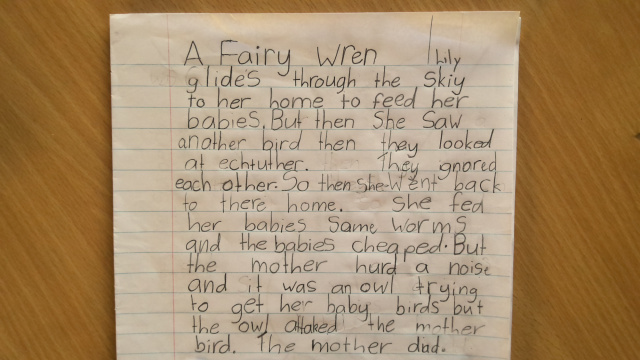 A Fairy wren lily
glides through the skiy
to her home to feed her
babies. But then she saw
another bird then they looked
at echtuther. They gnored
each other. So then she went back
to there home. She fed
her babies Same worms
and the babies cheaped. But
the mother hurd a noise
and it was an owl trying
to get her baby birds but
the owl attaked the mother
bird. The mother died.